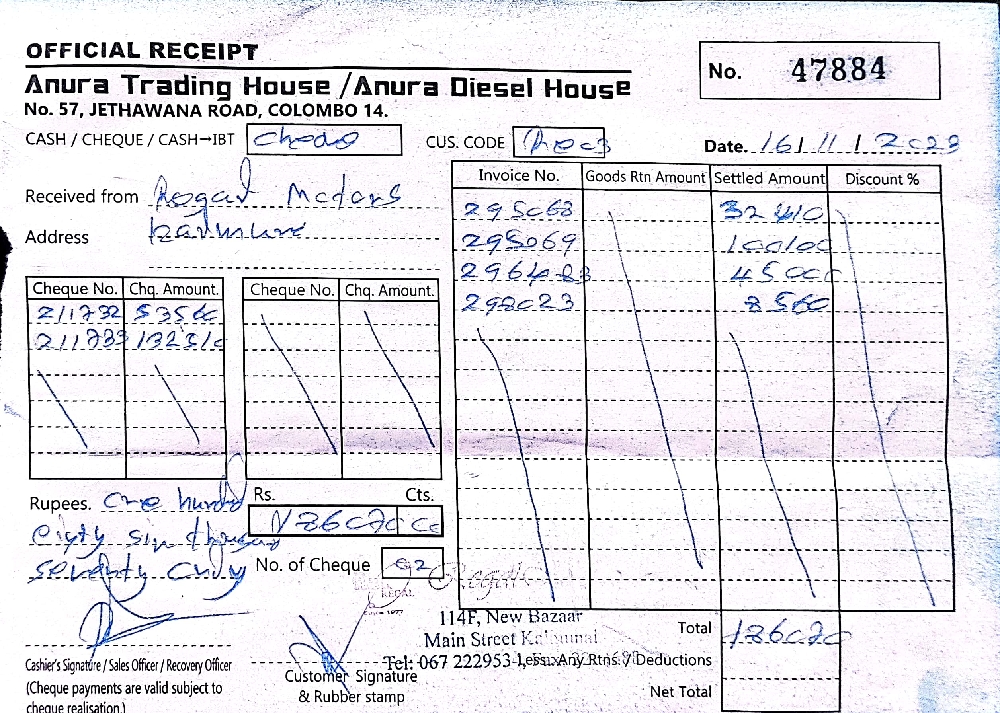 OFFICIAL RECEIPT
Anura Trading House / Anura Diesel House
No. 57, JETHAWANA ROAD, COLOMBO 14.
No. 47884
CASH / CHEQUE / CASH–IBT
CUS. CODE
Date. 16/11/2023
Received from Regal Motors
Address
Cheque No. Chq. Amount. Cheque No. Chq. Amount.
211732 53560
211733 132510
Invoice No. Goods Rtn Amount Settled Amount Discount %
295068 32410
295069 100100
45000
298023 8560
Rupees. One hundred
eighty six thousand
seventy only
Rs. Cts.
186070 00
No. of Cheque 02
REGAL
Regal
114F, New Bazaar
Main Street Kalmunai
Tel: 067 222953
Total 186070
Less: Any Rtns. / Deductions
Net Total
Cashier's Signature / Sales Officer / Recovery Officer
(Cheque payments are valid subject to
cheque realisation.)
Customer Signature
& Rubber stamp